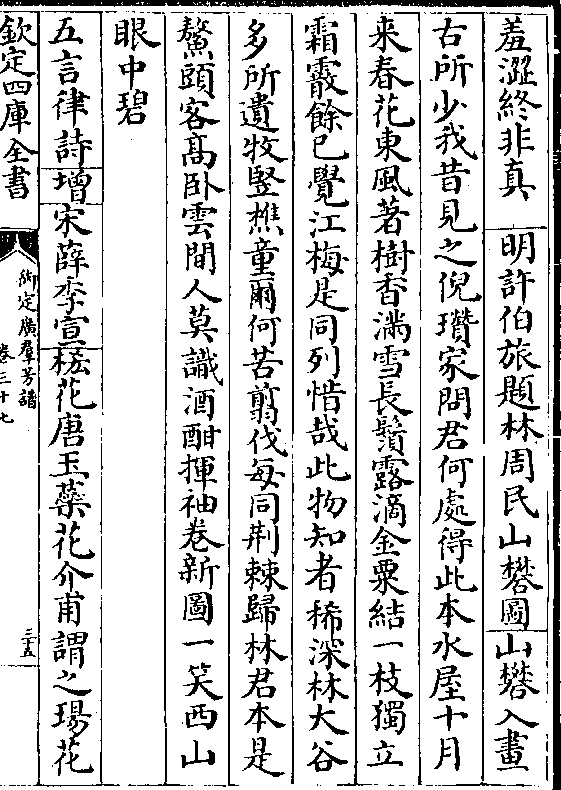 羞澀終非真　明許伯旅題林周民山礬圖山礬入畫
古所少我昔見之倪瓚家問君何處得此本水屋十月
来春花東風著樹香滿雪長鬚露滴金粟結一枝獨立
霜霰餘已覺江梅是同列惜哉此物知者稀深林大谷
多所遺牧豎樵童爾何苦翦伐每同荆棘歸林君本是
鰲頭客髙卧雲間人莫識酒酣揮袖卷新圖一笑西山
眼中碧
五言律詩增宋薛季宣㮃花唐玉蘂花介甫謂之瑒花
欽定四庫全書
御定廣羣芳譜
卷三十七
三五